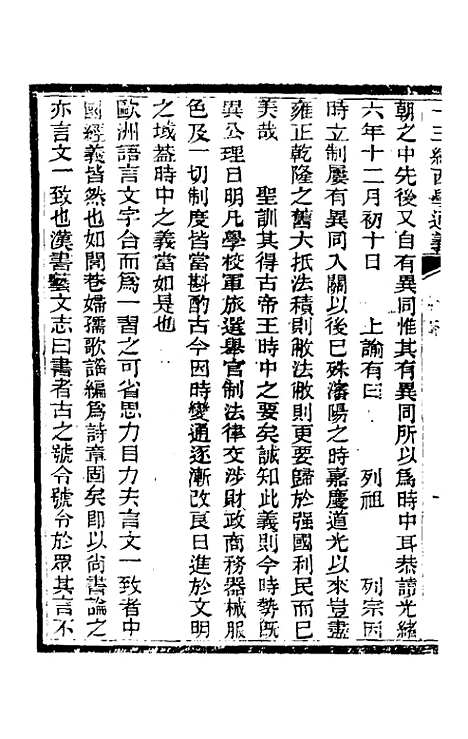 十三經西學通義
朝之中先後又自有異同惟其有異同所以爲時中耳恭讀光緒
六年十二月初十日　上諭有曰　列祖　列宗因
時立制屢有異同入關以後已殊瀋陽之時嘉慶道光以來豈盡
雍正乾隆之舊大抵法積則敝法敝則更要歸於强國利民而已
美哉　聖訓其得古帝王時中之要矣誠知此義則今時勢旣
異公理日明凡學校軍旅選舉官制法律交涉財政商務器械服
色及一切制度皆當斟酌古今因時變通逐漸改良日進於文明
之域葢時中之義當如是也
歐洲語言文字合而爲一習之可省思力目力夫言文一致者中
國經義皆然也如閭巷婦孺歌謠編爲詩章固矣卽以尙書論之
亦言文一致也漢書藝文志曰書者古之號令號令於眾其言不